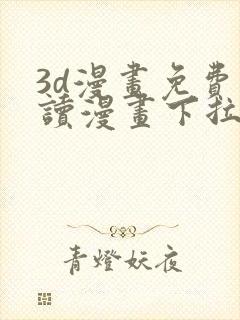 3d漫畫免費
讀漫畫下拉
青燈妖夜